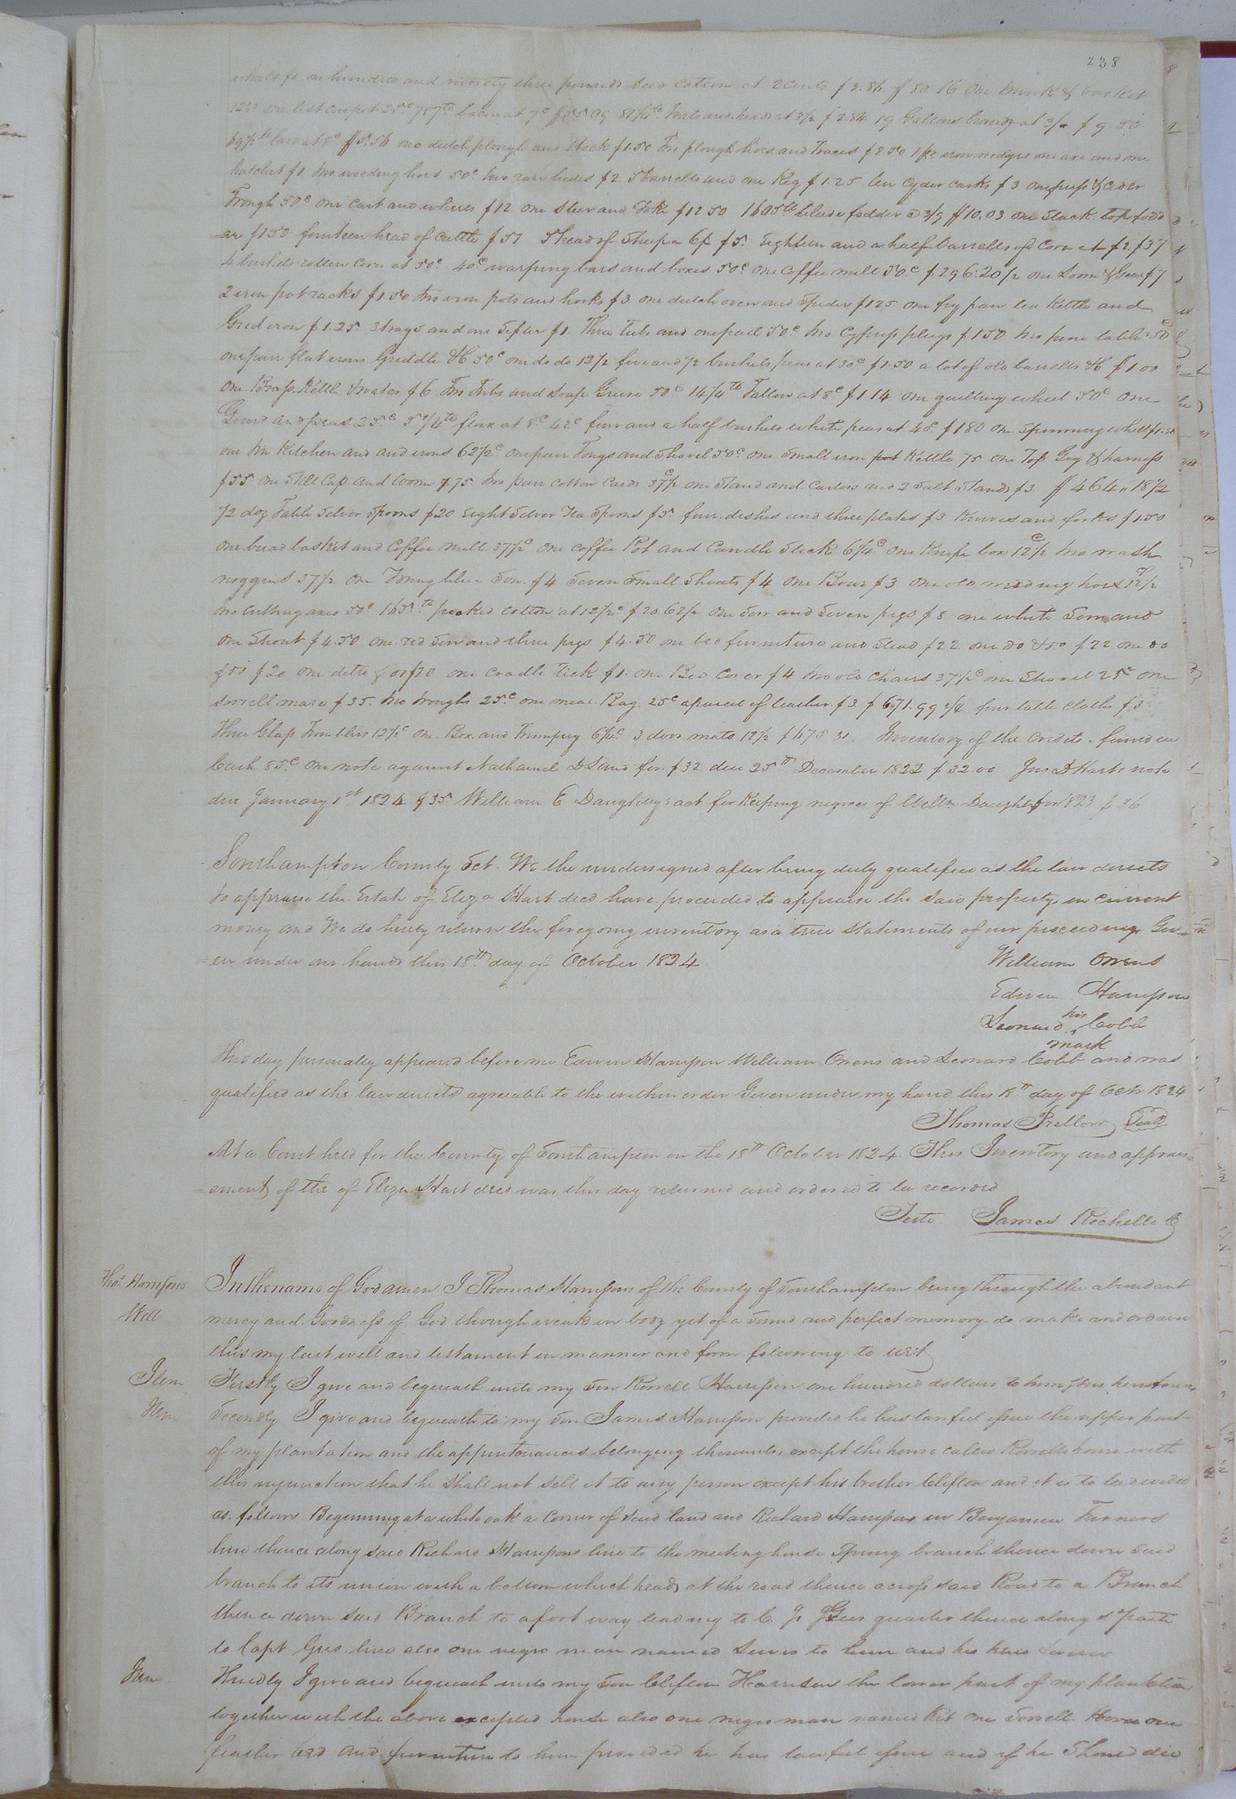 238
wheels $ one hundred and ninety three pounds seed cotton at 2 cents $3.86 $80 16 one trunk & basket
one best carpet 25c 707 lb bacon at 7c at 3½ $2.84 19 Gallons brandy at 3/ $9.50
lard at 8c $5.56 one dutch plough and Stock $1.50 Two plough hoes and Traces $2.50 iron wedges one axe and one
hatchet $1 two weeding hoes 50c two raw hides $2 5 barrels and one Keg $1.25 ten cyder casks $3 one press & Cider
Trough 50c one cart and wheels $12 one Steer and Yoke $12.50 1605 lb blade fodder a 3/9 $10.03 one Stack top fodd
er $1.50 fourteen head of Cattle $57 5 head of Sheep a 6/ $5. Eighteen and a half Barrells of Corn at $2. $37
4 bushels rotten Corn at 50c 40c warping bars and boxes 50c one Coffee mill 50c $296.20½ one Loom & Gear $7
2 iron pot racks $1.50 two iron pots and hooks $3 one dutch oven and Spider $1.25 one fry pan tea Kettle and
Gridiron $1.25 2 trays and one Sifter $1. Three Tubs and one pail 50c two Cypress $1.50 two pine tables 50c
one pair flat irons Griddle &c 50c one do do 12½ five and ½ bushels peas at 30c $1.50 a lot of old barrells &c $1.00
one Brass Kettle $6 Two Tubs and Soap Grease 50c 14¼ lb Tallow at 8c $1.14 one quilling wheel 50c one
Gourd and peas 25c 5¼ lb flax at 8c 42c four and a half bushels white peas at 40. $1.80 one Spinning wheel $1.50
one Kitchen and irons 62½c one pair Tongs and Shovel 50c one Small iron pot Kettle 75 one Top Gig & harness
$55 one Still Cap and worm $75 two pair cotton Cards 37½ one Stand and Castors and 2 Salt Stands $3 $464.18½
½ doz Table Silver Spoons $20 Eight Silver Tea Spoons $5 four dishes and three plates $3 Knives and forks $1.50
one bread basket and Coffee mill 37½c one coffee Pot and Candle Stick 6¼c one Knife box 12½c two wash
noggins 37½ one Young blue Sow $4 Seven Small Shoats $4 One Boar $3 one old weeding hoe 12½
two cutting axes 50c 165 lb picked Cotton at 12½c $20.62½ one Sow and Seven pigs $8 one white Sow and
one Shoat $4.50 one red Sow and three pigs $4.50 one bed furniture and Stead $22 one do & do $22 one do
& do $20 one ditto & do $20 one Cradle Tick $1. one Bed Cover $4 two old Chairs 37½c one Shovel 25c one
Sorrell mare $35. two troughs 25c one meal Bag 25c a parcel of leather $3 $671.99¼ four table cloths $3
Three Glass Tumblers 12½c one Box and Trumpery 6¼c 3 door mats 12½ $675 31. Inventory of the Credits found in
Cash 85c one note against Nathaniel D Land for $32 due 25th December 1822 $32 00 Jno D Harts note
due January 1st 1824 $35 William E Daughtreys act for Keeping negroes of Willm Daughtrey for 1823 $36
Southampton County Sct. We the undersigned after being duly qualified as the law directs
to appraise the Estate of Eliza Hart decd have proceeded to appraise the said property in current
money and We do hereby return the foregoing inventory as a true Statements of our proceedings Giv-
=en under our hands this 18th day of October 1824
William Owens
Edwin Harrison
Leonard his Cobb
mark
This day personally appeared before me Edwin Harrison William Owens and Leonard Cobb and was
qualified as the law directs agreeable to the within order Given under my hand this 18th day of Octr 1824
Thomas Pretlow Seal
At a Court held for the County of Southampton on the 18th October 1824 This Inventory and apprais-
ement of the of Eliza Hart decd was this day returned and ordered to be recorded
Teste James Rochelle C
Thos Harrisons Will
In the name of God amen I Thomas Harrison of the County of Southampton being through the abundant
mercy and Goodness of God though weak in body yet of a sound and perfect memory do make and ordain
this my last will and testament in manner and form following to wit
Item Firstly I give and bequeath unto my Son Rowell Harrison one hundred dollars to him & his heirs forever
Item Secondly I give and bequeath to my Son James Harrison provided he has lawful issue the upper part
of my plantation and the appurtenances belonging thereunto, except the house called Rowells house with
this injunction that he shall not sell it to any person except his brother Clifton and it is to be divided
as follows Beginning at a white oak a Corner of said land and Richard Harrisons in Benjamin Turners
line thence along said Richard Harrisons line to the meeting house Spring branch thence down said
branch to its union with a bottom which heads at the road thence across said Road to a Branch
thence down said Branch to a foot way leading to quarter thence along sd path
to Capt line also one negro man named Lewis to him and his heirs forever
Item Thirdly I give and bequeath unto my Son Clifton Harrison the lower part of my plantation
together with the above excepted house also one negro man named Kit one Sorrell Horse one
feather bed and furniture to him provided he has lawful issue and if he Should die